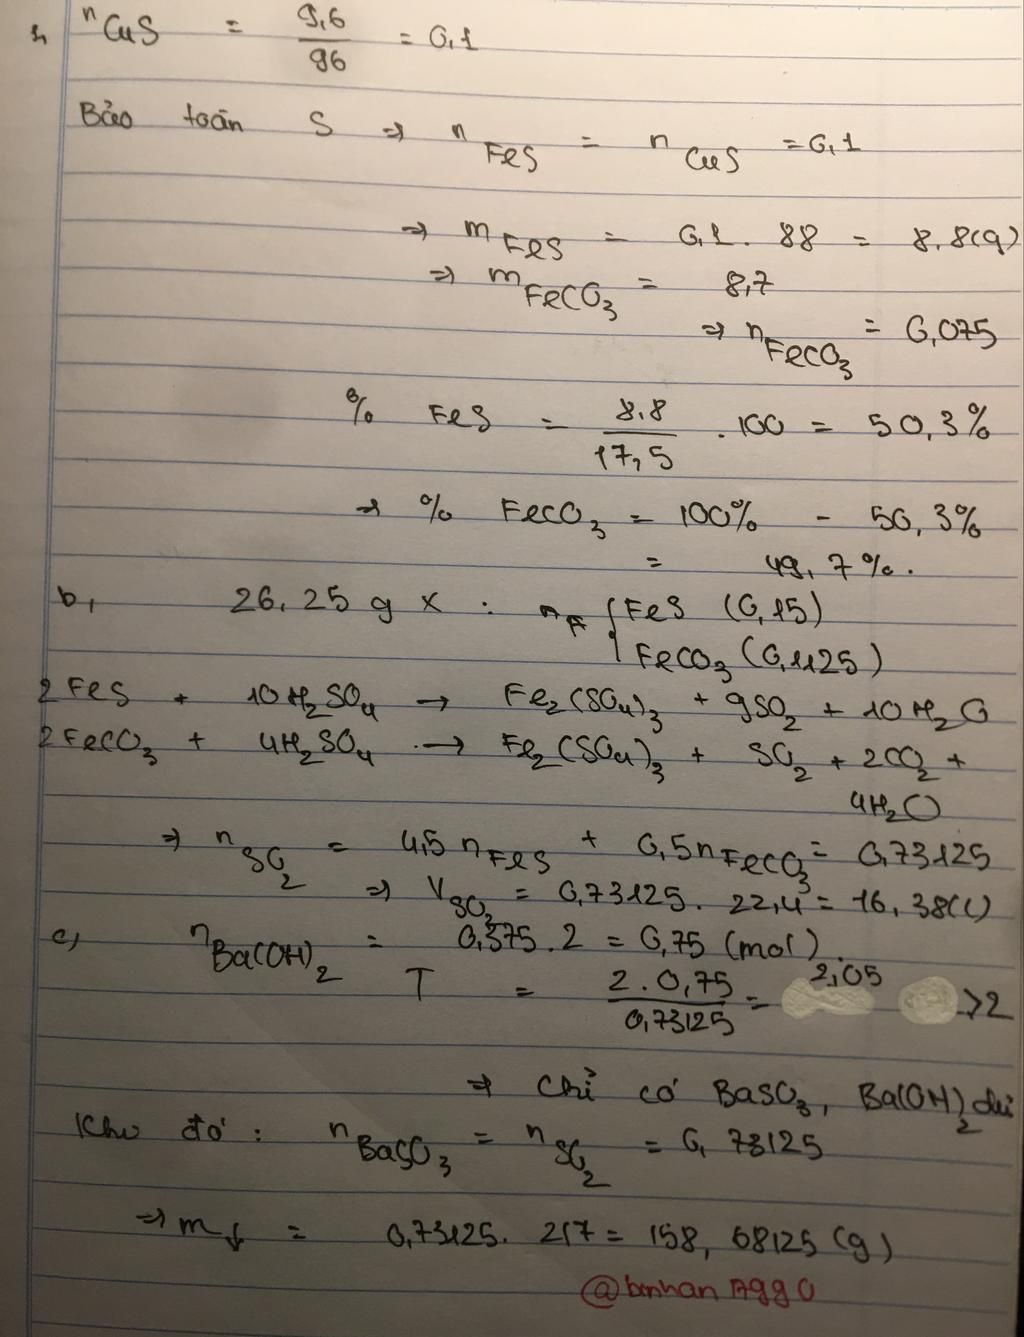 a, nCuS = 9,6/96 = 0,1
Bảo toàn S ⇒ nFeS = nCuS = 0,1
⇒ mFeS = 0,1 . 88 = 8,8(g)
⇒ mFeCO3 = 8,7
⇒ nFeCO3 = 0,075
% FeS = 8.8/17,5 . 100 = 50,3%
⇒ % FeCO3 = 100% - 50,3%
= 49,7%.
b, 26,25 g X : { FeS (0,15)
FeCO3 (0,1125)
2FeS + 10H2SO4 → Fe2(SO4)3 + 9SO2 + 10H2O
2FeCO3 + 4H2SO4 → Fe2(SO4)3 + SO2 + 2CO2 +
4H2O
⇒ nSO2 = 4,5nFeS + 0,5nFeCO3 = 0,73125
⇒ VSO2 = 0,73125. 22,4 = 16,38(l)
c, nBa(OH)2 = 0,375.2 = 0,75 (mol).
T = 2.0,75/0,73125 = 2,05 >2
⇒ Chỉ có BaSO3, Ba(OH)2 dư
Khi đó: nBaSO3 = nSO2 = 0,73125
⇒ m↓ = 0,73125. 217 = 158,68125 (g)